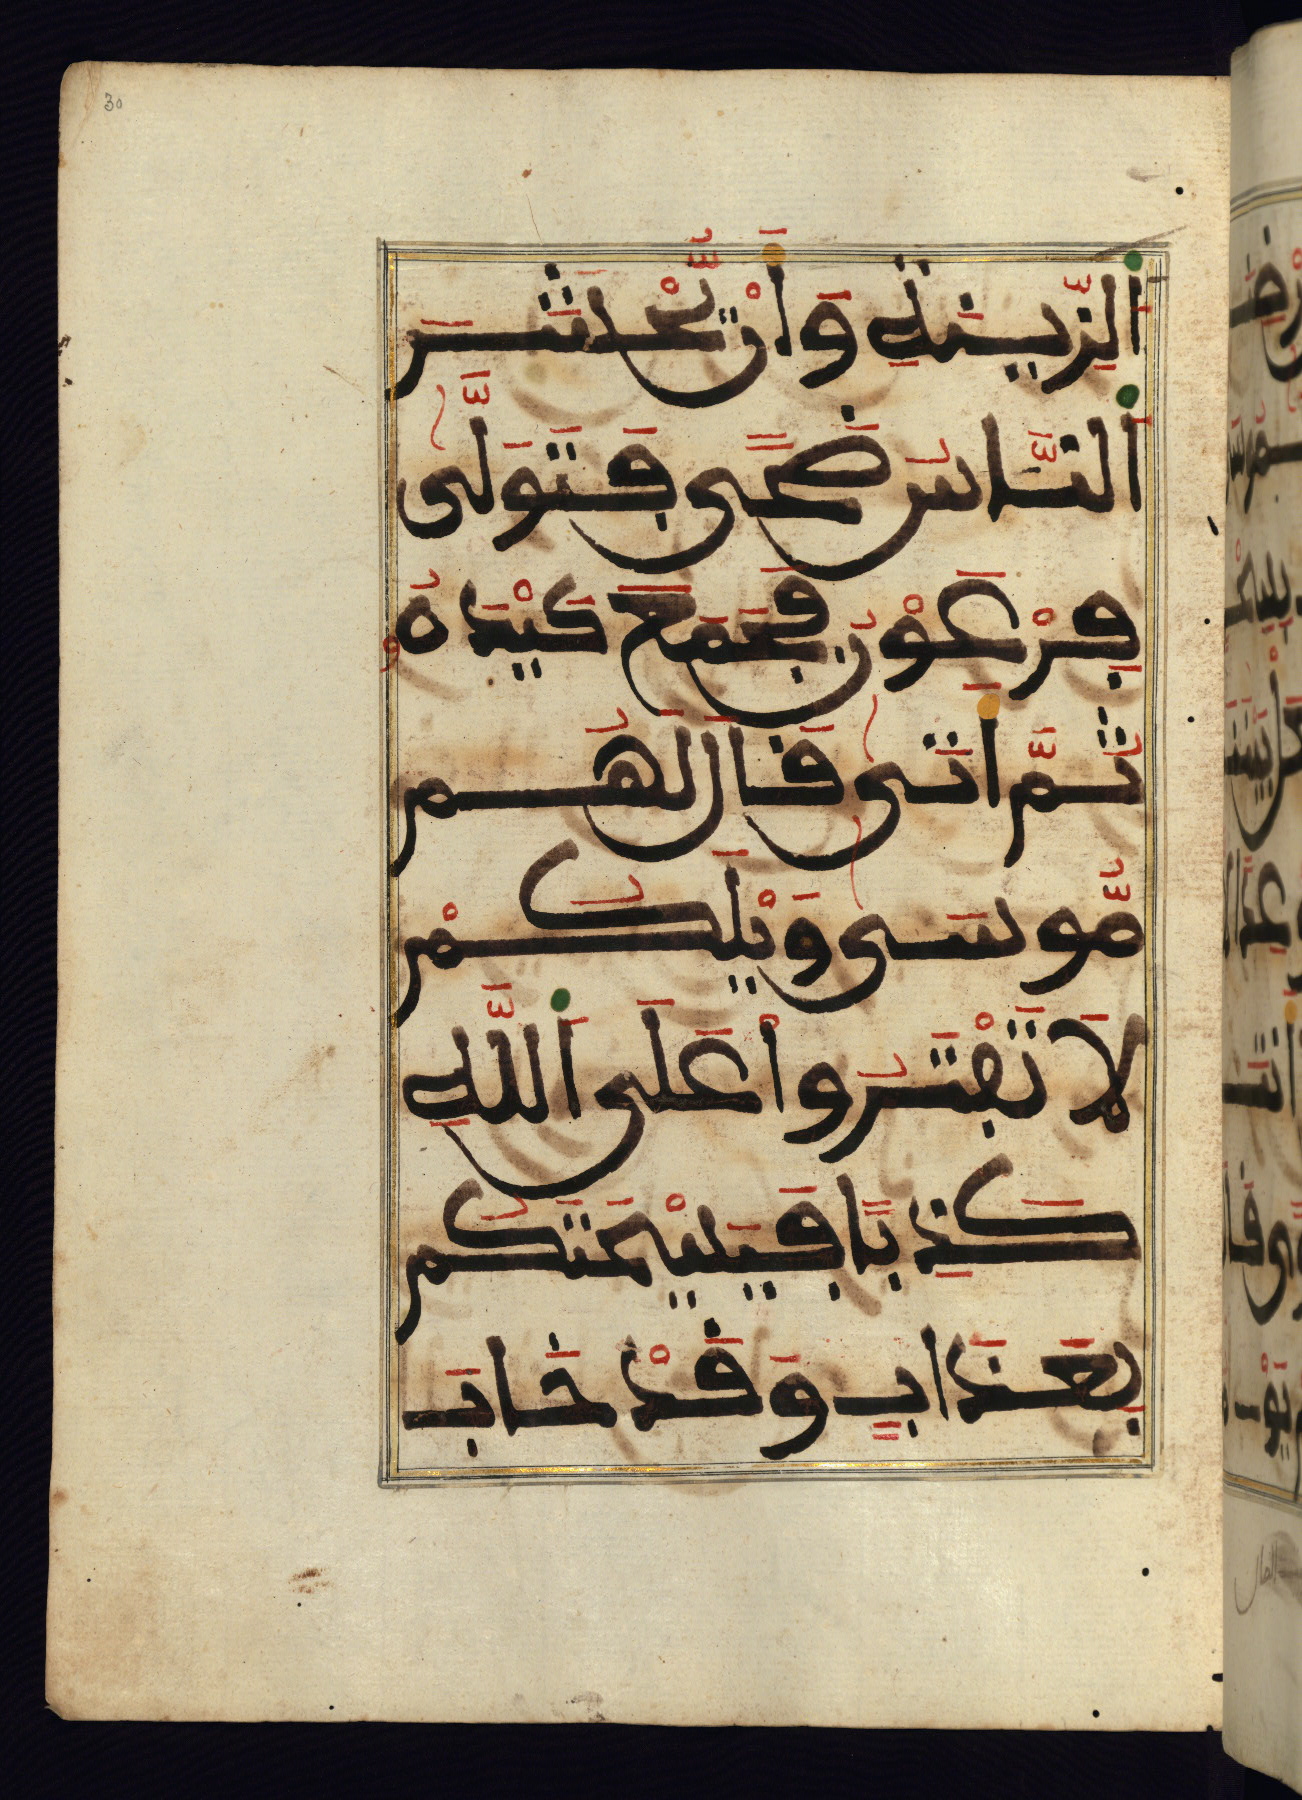 30
الزِّينَةِ وَأَنْ يُّحْشَرَ
النَّاسُ ضُحًى فَتَوَلَّى
فِرْعَوْنُ فَجَمَعَ كَيْدَهُ
ثُمَّ أَتَى قَالَ لَهُم
مُّوسَى وَيْلَكُمْ
لَا تَفْتَرُوا عَلَى اللَّهِ
كَذِبًا فَيَسْحَتَكُم
بِعَذَابٍ وَقَدْ خَابَ